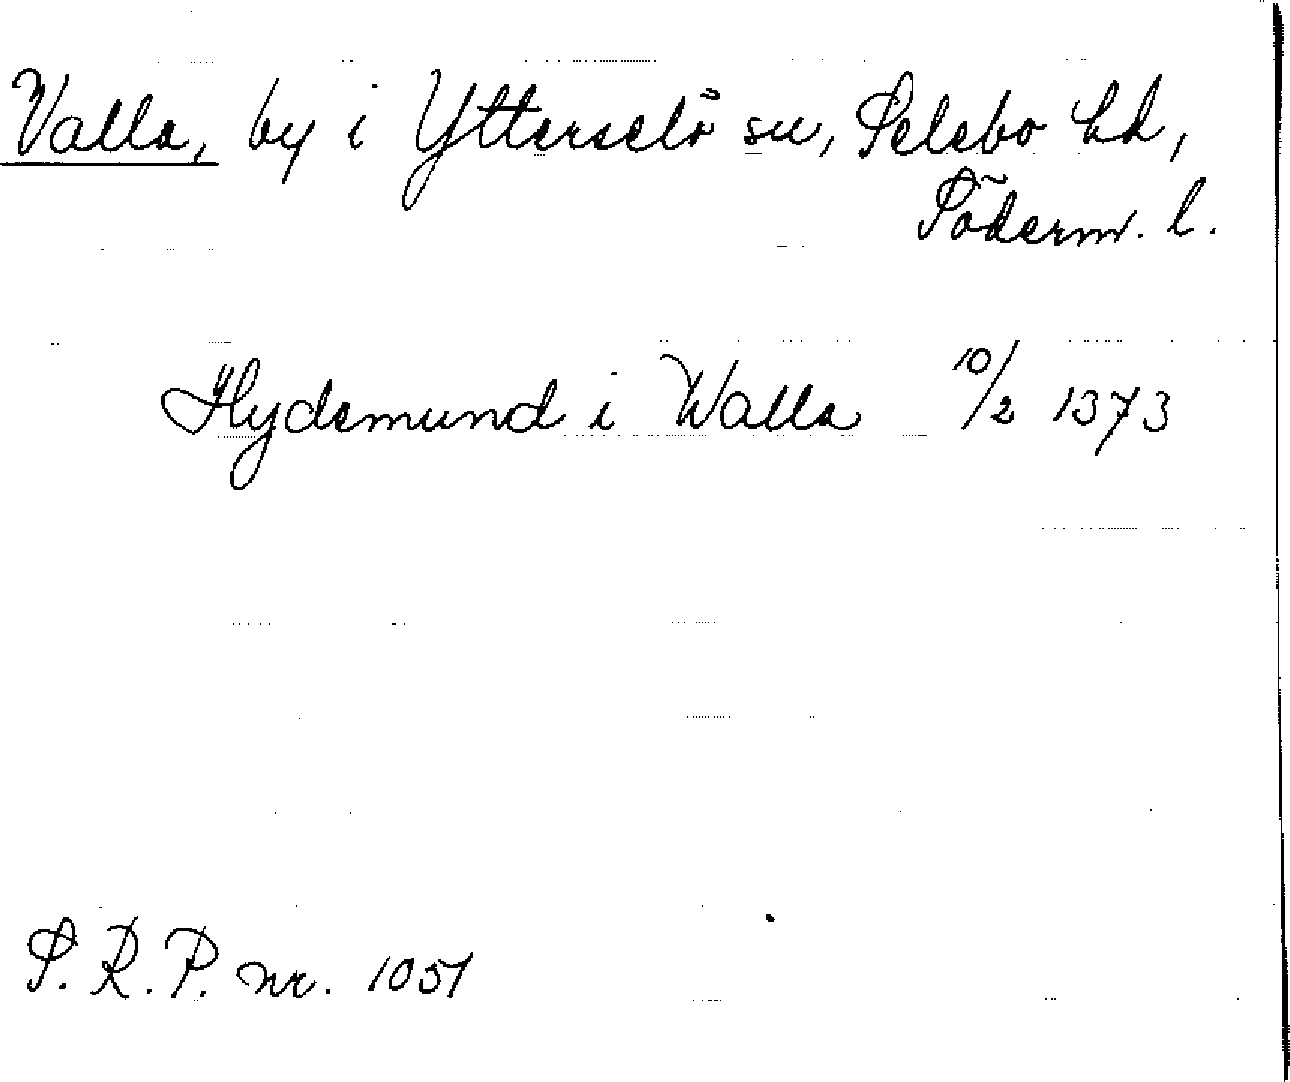 Valla, by i Ytterselö sn, Selebo hd,
Söderm. l.
Hydemund i Walla 10/2 1373
S. R. P. nr. 1051